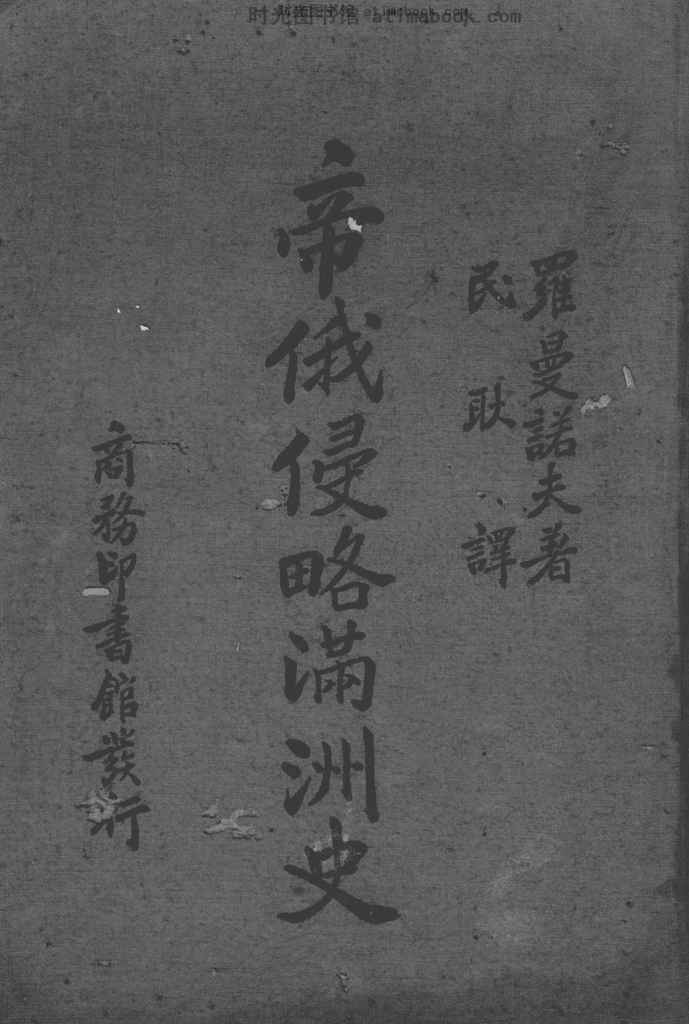 时光图书馆 atimabook.com
羅曼諾夫著
民耿譯
帝俄侵略滿洲史
商務印書館發行